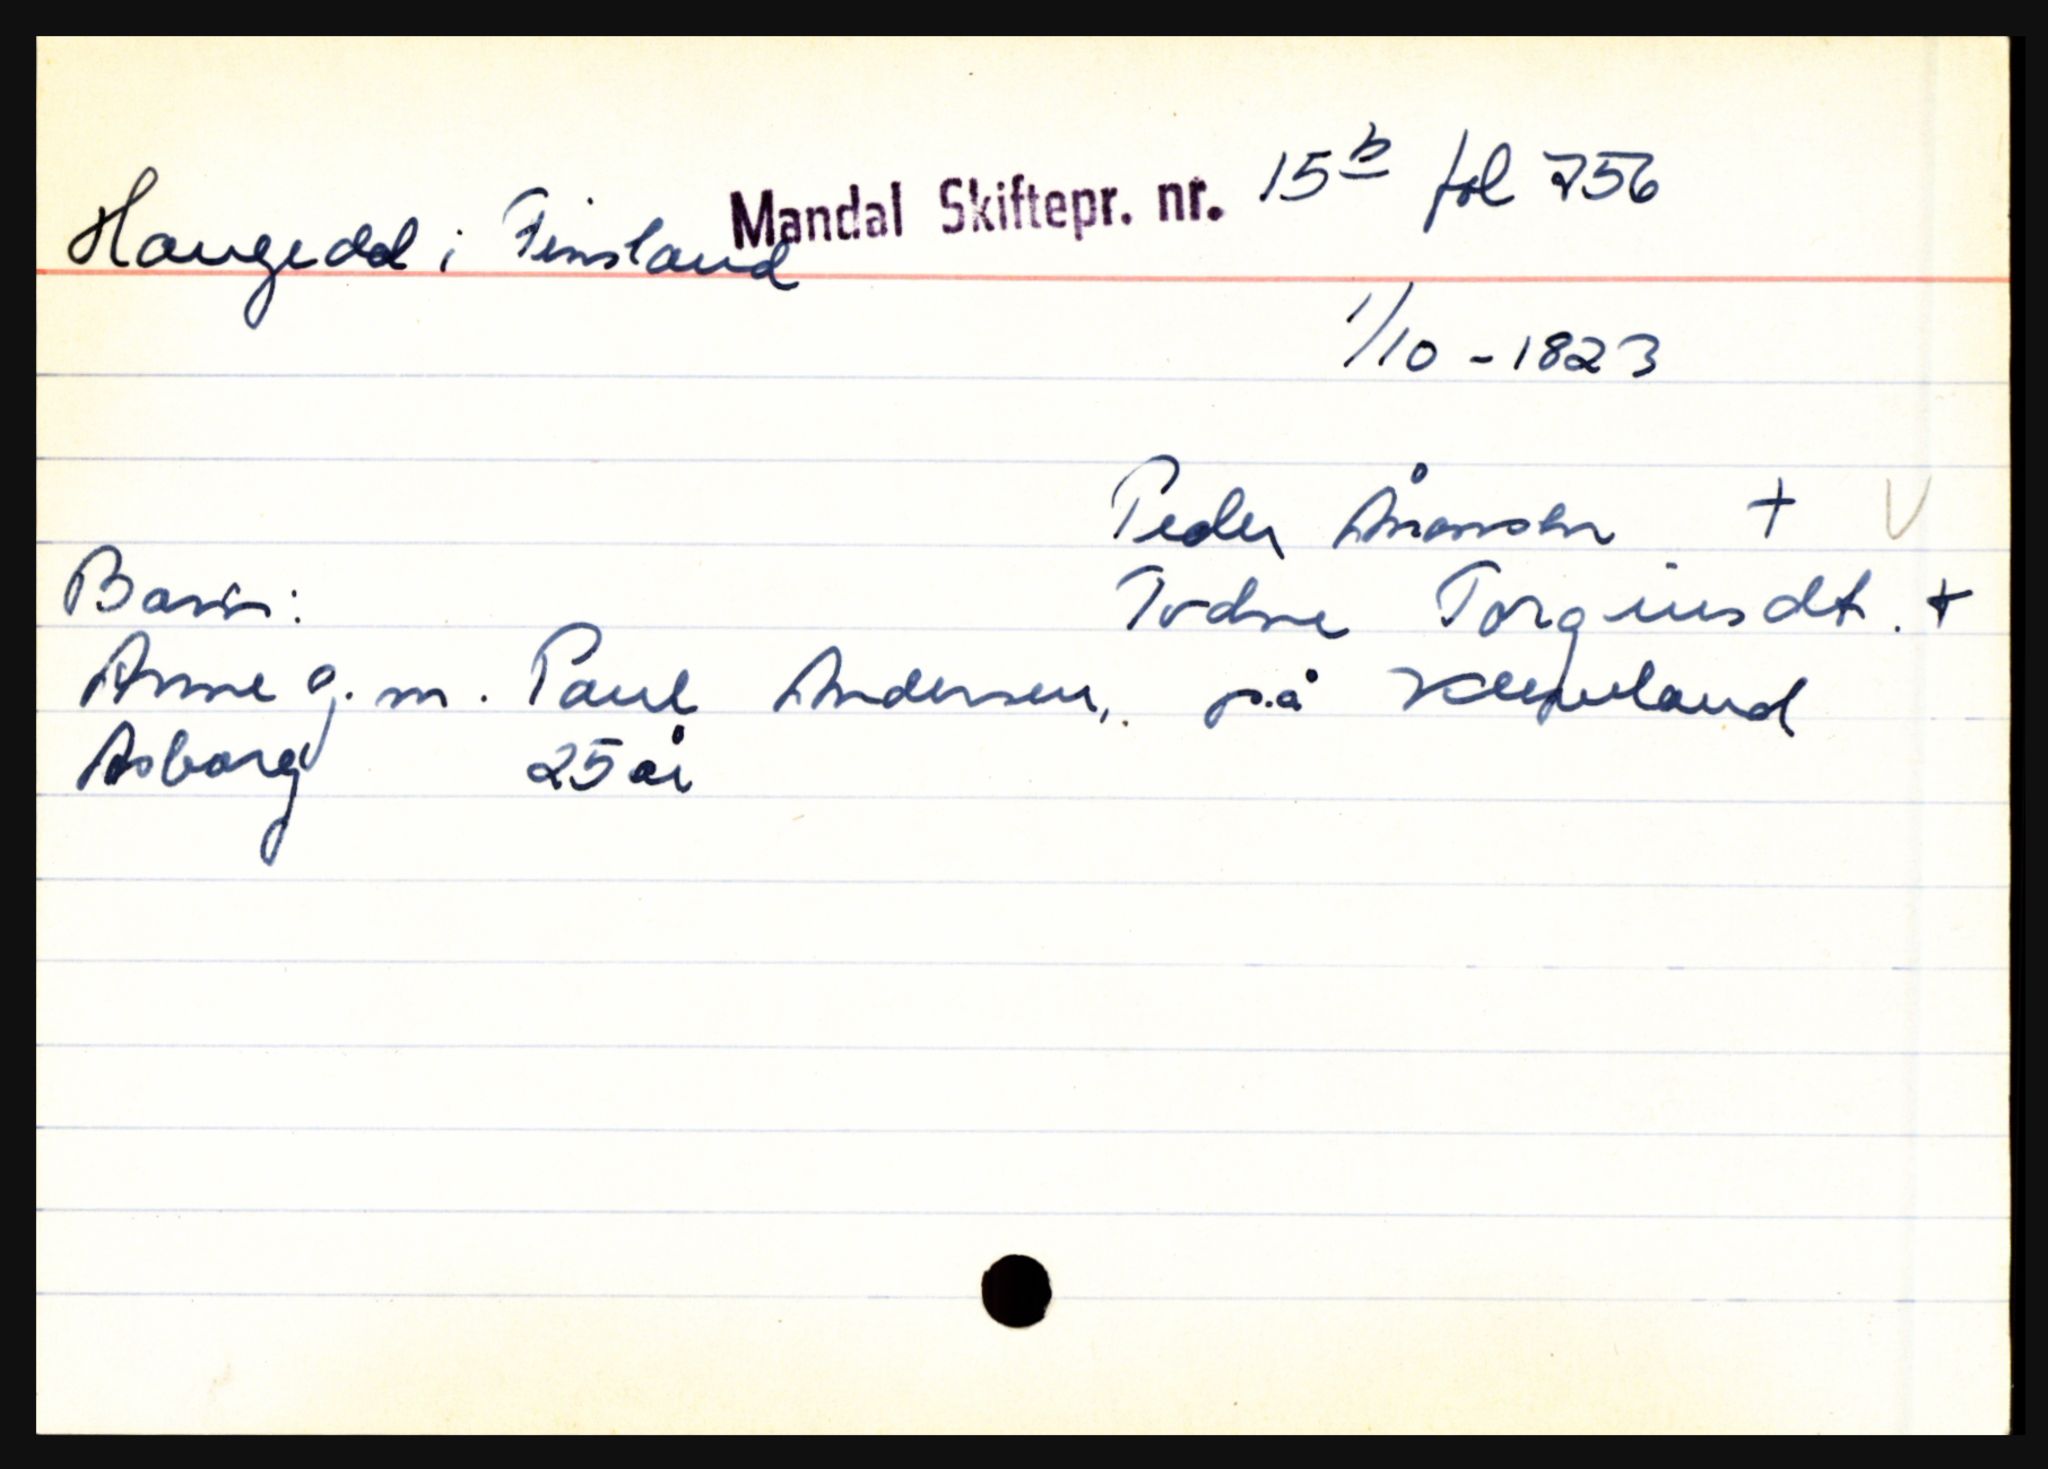 Mandal Skiftepr. nr. 15b fol 756
Haugedal i Finsland
1/10 - 1823
Peder Ånonsen + V
Todne Torgiusdt. +
Barn:
Anne g. m. Paul Andersen, på Kleveland
Asborg 25 år